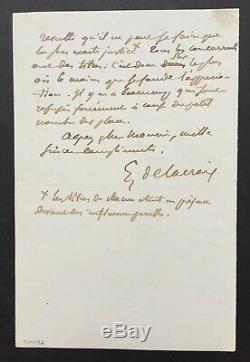 résulte qu'il ne peut se faire que
la plus exacte justice. Tous les concurrents
ont des titres. C'est dans les plus
ou le moins que se fonde l'appréciation
Il y en a beaucoup qui sont
refusés forcément à cause du petit
nombre des places.
Agréez cher Monsieur, mille
sincères compliments.
E Delacroix
+ les titres de chacun étant en présence
devant des